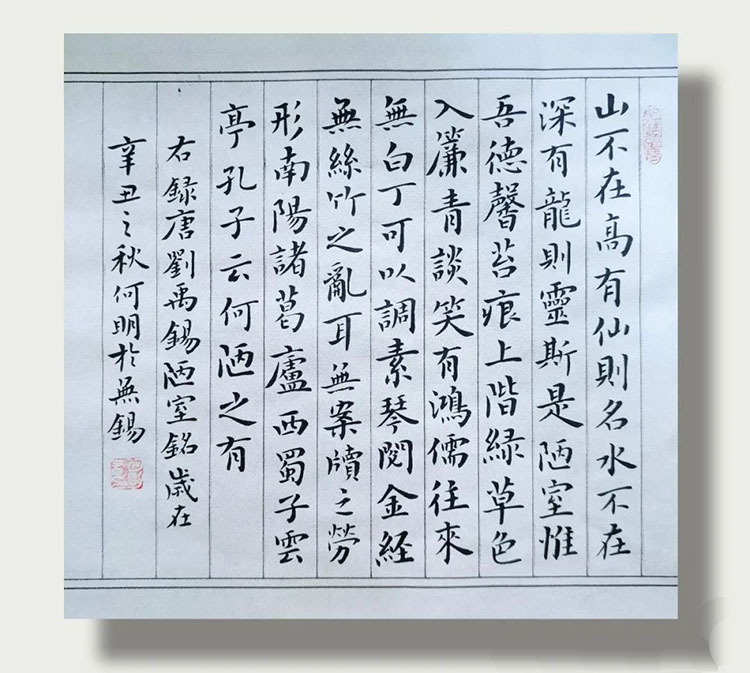 山不在高有仙則名水不在
深有龍則靈斯是陋室惟
吾德馨苔痕上階緑草色
入簾青談笑有鴻儒往來
無白丁可以調素琴閱金経
無絲竹之亂耳無案牘之勞
形南陽諸葛廬西蜀子雲
亭孔子云何陋之有
右録唐劉禹錫陋室銘歲在
辛丑之秋何明於無錫